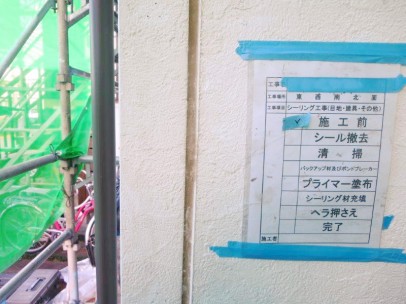 工事
工事場所 東 西 南 北 面
工事項目 シーリング工事(目地・建具・その他)
レ 施 工 前
シール撤去
清 ~ 掃
バックアップ材及びボンドブレーカー
プライマー塗布
シーリング材充填
ヘラ押さえ
完了
施工者